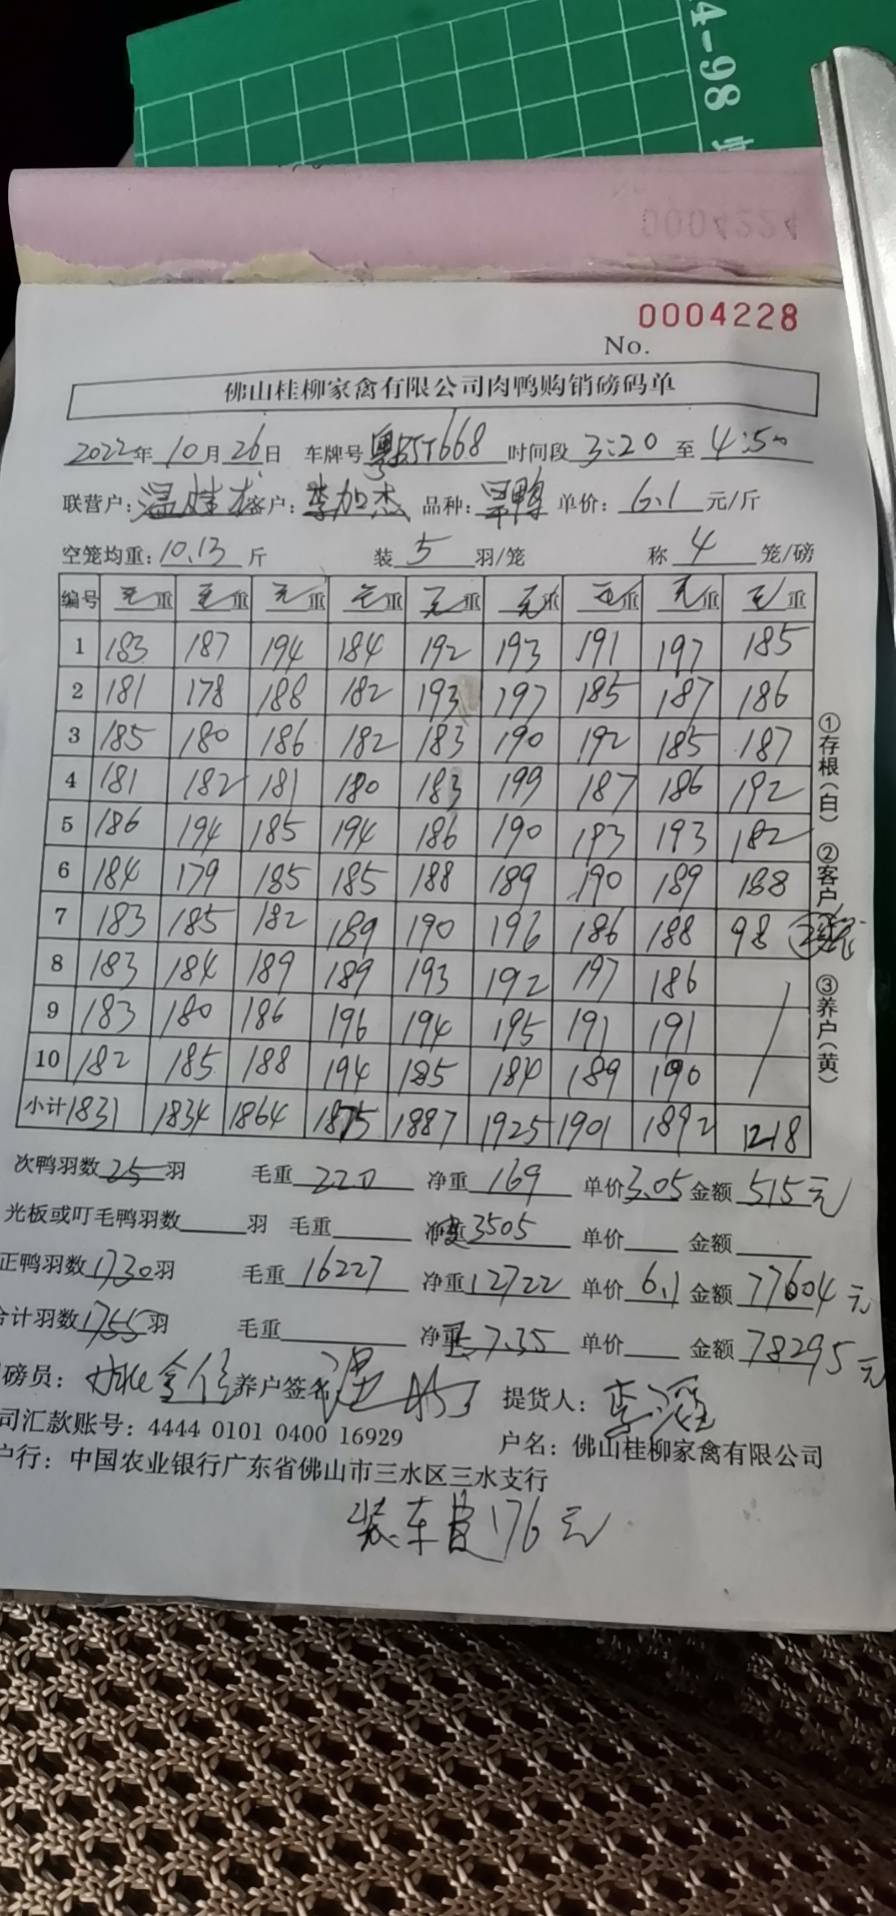 4-98
0004224
0004228
No.
佛山桂柳家禽有限公司肉鸭购销磅码单
2022年 10月 26日 车牌号 668 时间段 3:20 至 4:50
联营户: 客户: 李加杰 品种: 单价: 6.1 元/斤
空笼均重: 10.13 斤 装 5 羽/笼 称 4 笼/磅
编号 毛重 毛重 毛重 毛重 毛重 毛重 毛重 毛重 毛重
1 183 187 194 184 192 193 191 197 185
2 181 178 188 182 193 197 185 187 186
3 185 180 186 182 183 190 192 185 187
4 181 182 181 180 183 199 187 186 192
5 186 194 185 194 186 190 193 193 182
6 184 179 185 185 188 189 190 189 188
7 183 185 182 189 190 196 186 188 98
8 183 184 189 189 193 192 197 186
9 183 180 186 196 194 195 191 191
10 182 185 188 194 185 184 189 190
小计 1831 1834 1864 1875 1887 1925 1901 1892 1218
①存根(白) ②客户 ③养户(黄)
次鸭羽数 25 羽 毛重 220 净重 169 单价 3.05 金额 515元
光板或叮毛鸭羽数 羽 毛重 3505 单价 金额
正鸭羽数 1730 羽 毛重 16227 净重 12722 单价 6.1 金额 77604元
合计羽数 1755 羽 毛重 净重 7.35 单价 金额 78295元
磅员: 养户签名 提货人: 李
司汇款账号: 4444 0101 0400 16929 户名: 佛山桂柳家禽有限公司
户行: 中国农业银行广东省佛山市三水区三水支行
装车费176元